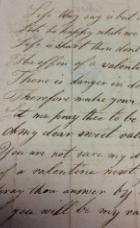 Life they say is but a
Lets be happy while we
Life is short then dont
The offer of a valentine
There is danger in de
Therefore make your
Let me pray thee to be
Oh my dear sweet vale
You are not sure my d
of a valentine next
pray thou answer by
if you will be my va